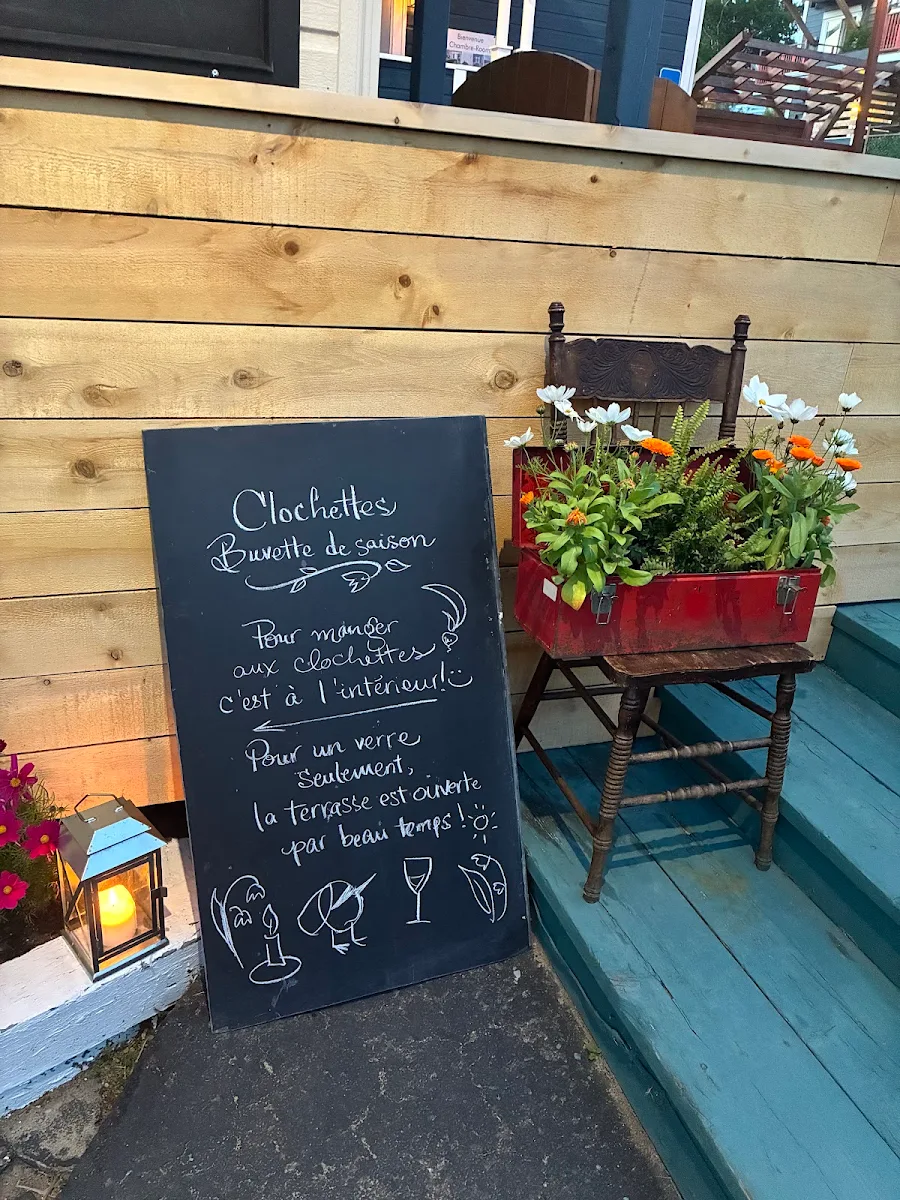 Bienvenue
Chambre-Room
Clochettes
Buvette de saison
Pour manger
aux clochettes
c'est à l'intérieur!
Pour un verre
seulement,
la terrasse est ouverte
par beau temps!